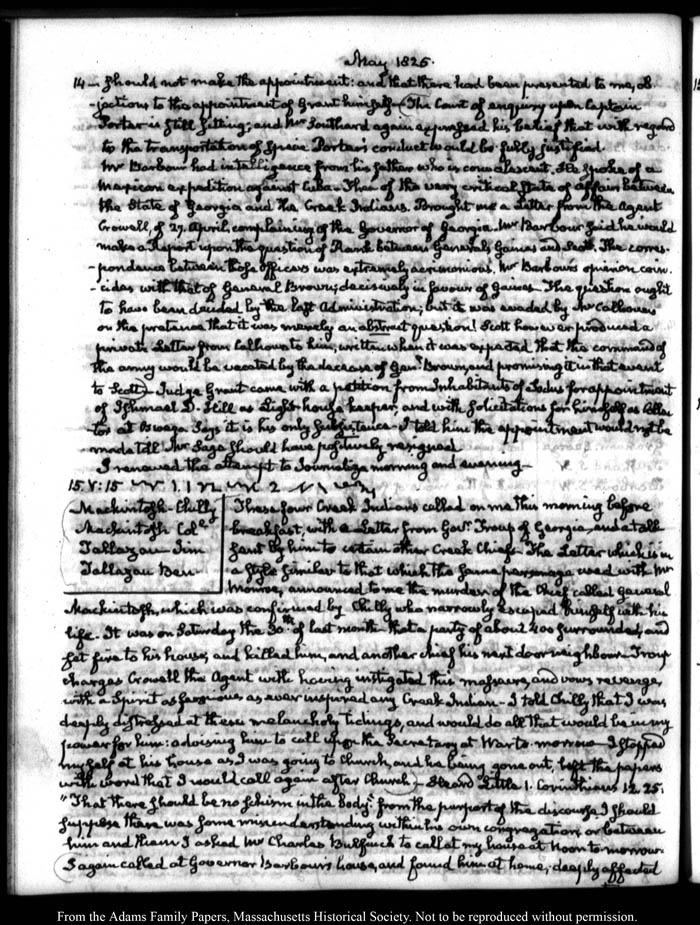 May 1825.
14 — should not make the appointment: and that there had been presented to me, ob
-jections to the appointment of Grant himself— The Court of enquiry upon Captain
Porter is still sitting; and Mr Southard again expressed his belief that with regard
to the transportation of Specie Porter's conduct would be fully justified.
Mr Barbour had intelligence from his father who is convalescent. He spoke of a
Mexican expedition against Cuba. Then of the very critical State of affairs between
the State of Georgia and the Creek Indians. Brought me a Letter from the Agent
Crowell, of 27. April, complaining of the Governor of Georgia. Mr Barbour said he would
make a Report upon the question of Rank between Generals Gaines and Scott. The corres-
-pondence between those Officers was extremely acrimonious. Mr Barbour's opinion coin-
-cides with that of General Brown; decisively in favour of Gaines— The question ought
to have been decided by the last Administration; but it was evaded by Mr Calhoun
on the pretence that it was merely an abstract question! Scott however produced a
private Letter from Calhoun to him, written when it was expected that the command of
the army would be vacated by the decease of Genl. Brown, and promising it in that event
to Scott— Judge Grant came with a petition from Inhabitants of Sodus for appointment
of Ishmael D. Hill as Light-house keeper; and with solicitations for himself as Collec
tor at Oswego. Says it is his only subsistence— I told him the appointment would not be
made till Mr Sage should have positively resigned
I renewed the attempt to Journalize morning and evening—
15. V: 15
Mackintosh Chilly
Mackintosh Col
Tallazau Jim
Tallazau Ben
These four Creek Indians called on me this morning before
breakfast, with a Letter from Govr. Troup of Georgia, and a talk
sent by him to certain other Creek Chiefs— The Letter which is in
a style similar to that which the same personage used with Mr
Monroe, announced to me the murder of the Chief called General
Mackintosh, which was confirmed by Chilly who narrowly escaped himself with his
life. It was on Saturday the 30th. of last month that a party of about 400 surrounded, and
set fire to his house, and killed him, and another chief his next door neighbour— Troup
charges Crowell the Agent with having instigated this massacre, and vows revenge
with a Spirit as ferocious as ever inspired any Creek Indian— I told Chilly that I was
deeply distressed at these melancholy tidings, and would do all that would be in my
power for him: advising him to call upon the Secretary at War to-morrow— I stopped
myself at his house as I was going to Church, and he being gone out, left the papers
with word that I would call again after Church— Heard Little 1. Corinthians 12. 25.
"That there should be no schism in the body." from the purport of the discourse I should
suppose there was some misunderstanding within his own congregation, or between
him and them— I asked Mr Charles Bulfinch to call at my house at Noon to-morrow.
I again called at Governor Barbour's house, and found him at home; deeply affected
From the Adams Family Papers, Massachusetts Historical Society. Not to be reproduced without permission.